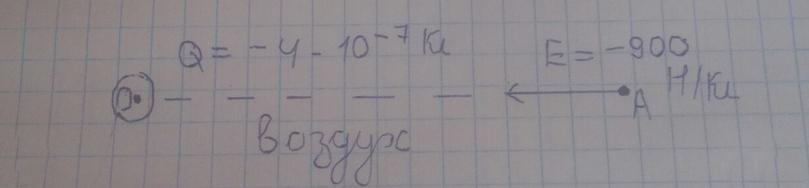 Q = -4 · 10⁻⁷ Кл E = -900
О A Н/Кл
воздух